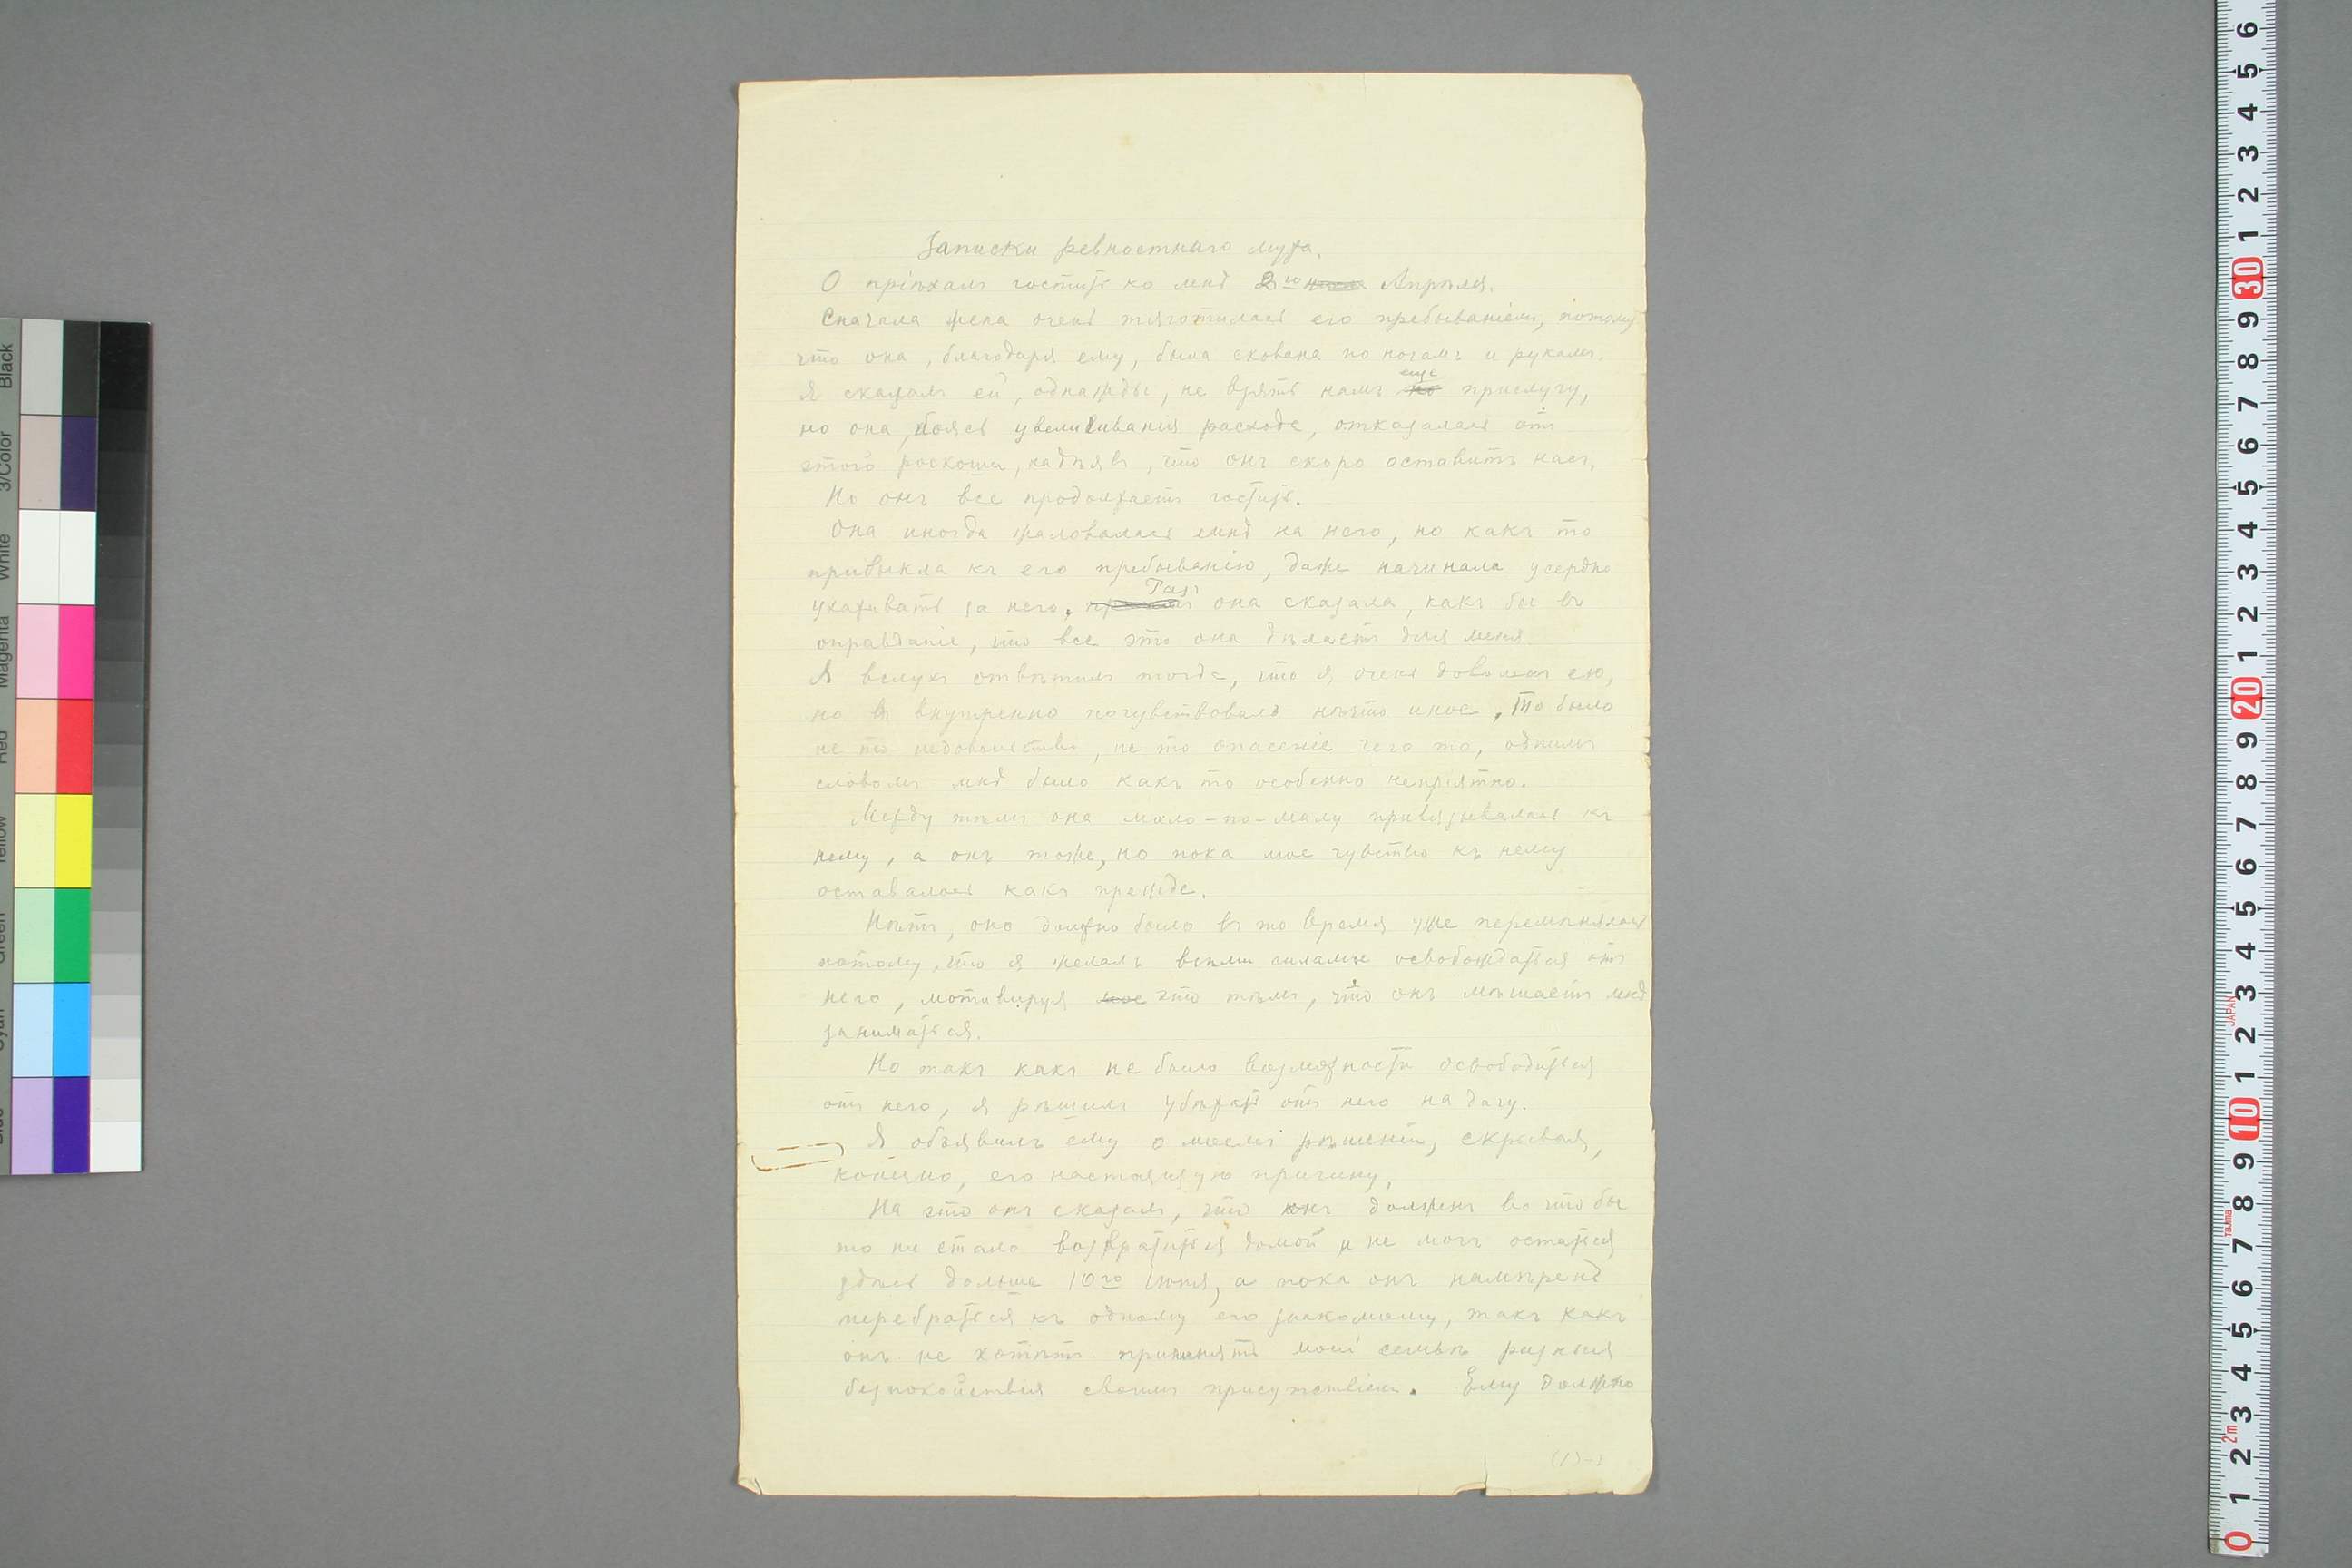 Записки ревностнаго мужа.
О пріѣхалъ гостить ко мнѣ 2го Апрѣля.
Сначала жена очень тяготилась его пребываніемъ, потому
что она, благодаря ему, была скована по ногамъ и рукамъ.
Я сказалъ ей, однажды, не взять намъ еще прислугу,
но она, боясь увеличиванія расхода, отказалась отъ
этого роскоши, надѣявъ, что онъ скоро оставитъ насъ.
Но онъ все продолжаетъ гостить.
Она иногда жаловалась мнѣ на него, но какъ то
привыкла къ его пребыванію, даже начинала усердно
ухаживать за него. Разъ она сказала, какъ бы въ
оправданіе, что все это она дѣлаетъ для меня.
Я вслухъ отвѣтилъ тогда, что я очень доволенъ ею,
но внутренно почувствовалъ нѣчто иное, То было
не то недовольство, не то опасеніе чего то, однимъ
словомъ мнѣ было какъ то особенно непріятно.
Между тѣмъ она мало-по-малу привязывалась къ
нему, а онъ тоже, но пока мое чувство къ нему
оставалось какъ прежде.
Нѣтъ, оно должно было въ то время уже перемѣнялось
потому, что я желалъ всѣми силами освобождаться отъ
него, мотивируя это тѣмъ, что онъ мѣшаетъ мнѣ
заниматься.
Но такъ какъ не было возможности освободиться
отъ него, я рѣшилъ убѣжать отъ него на дачу.
Я объявилъ ему о моемъ рѣшеніи, скрывая,
конечно, его настоящую причину,
На это онъ сказалъ, что онъ долженъ во что бы
то ни стало возвратиться домой и не могъ остаться
здѣсь дольше 10го Іюня, а пока онъ намѣренъ
перебраться къ одному его знакомому, такъ какъ
онъ не хотѣтъ причинять моей семьѣ разныя
безпокойствія своимъ присутствіемъ. Ему должно
(1)-1
0 1 2 3 4 5 6 7 8 9 10 1 2 3 4 5 6 7 8 9 20 1 2 3 4 5 6 7 8 9 30 1 2 3 4 5 6
2m
Tajima
JAPAN
Blue Cyan Green Yellow Red Magenta White 3/Color Black